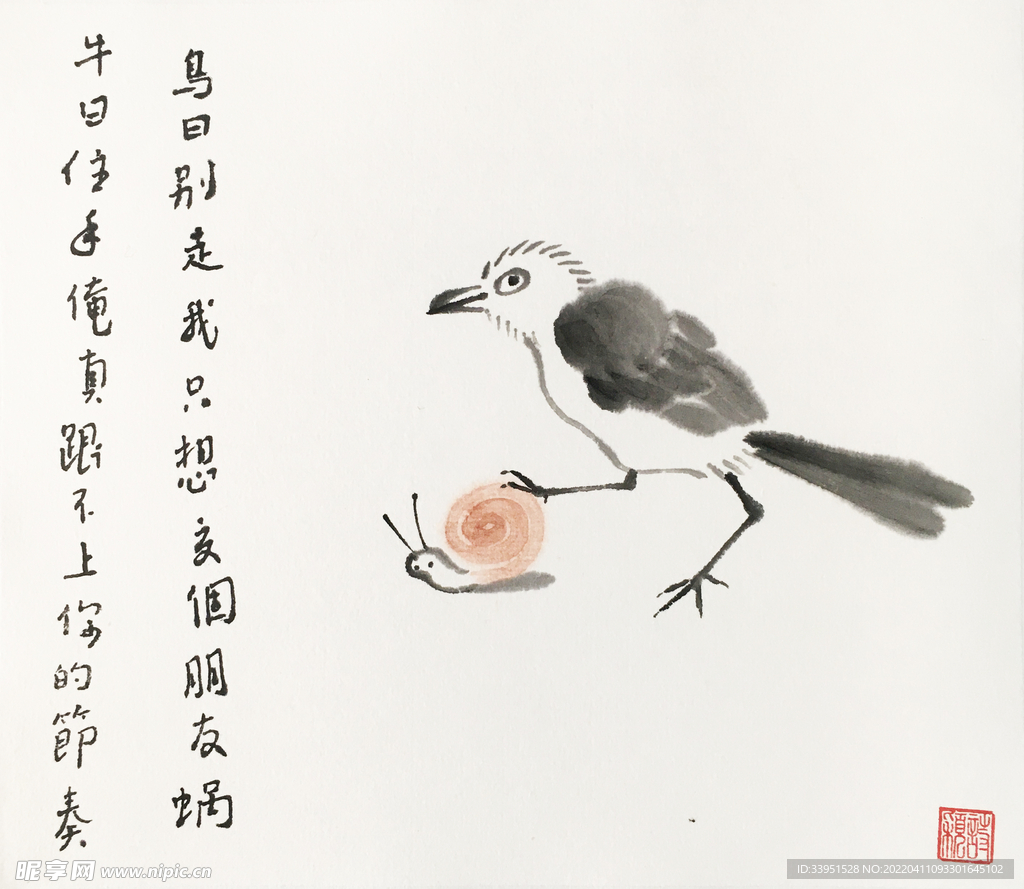 鸟曰别走我只想交個朋友蜗
牛曰住手俺真跟不上你的節奏
昵享网 www.nipic.cn
ID:33951528 NO:20220411093301645102